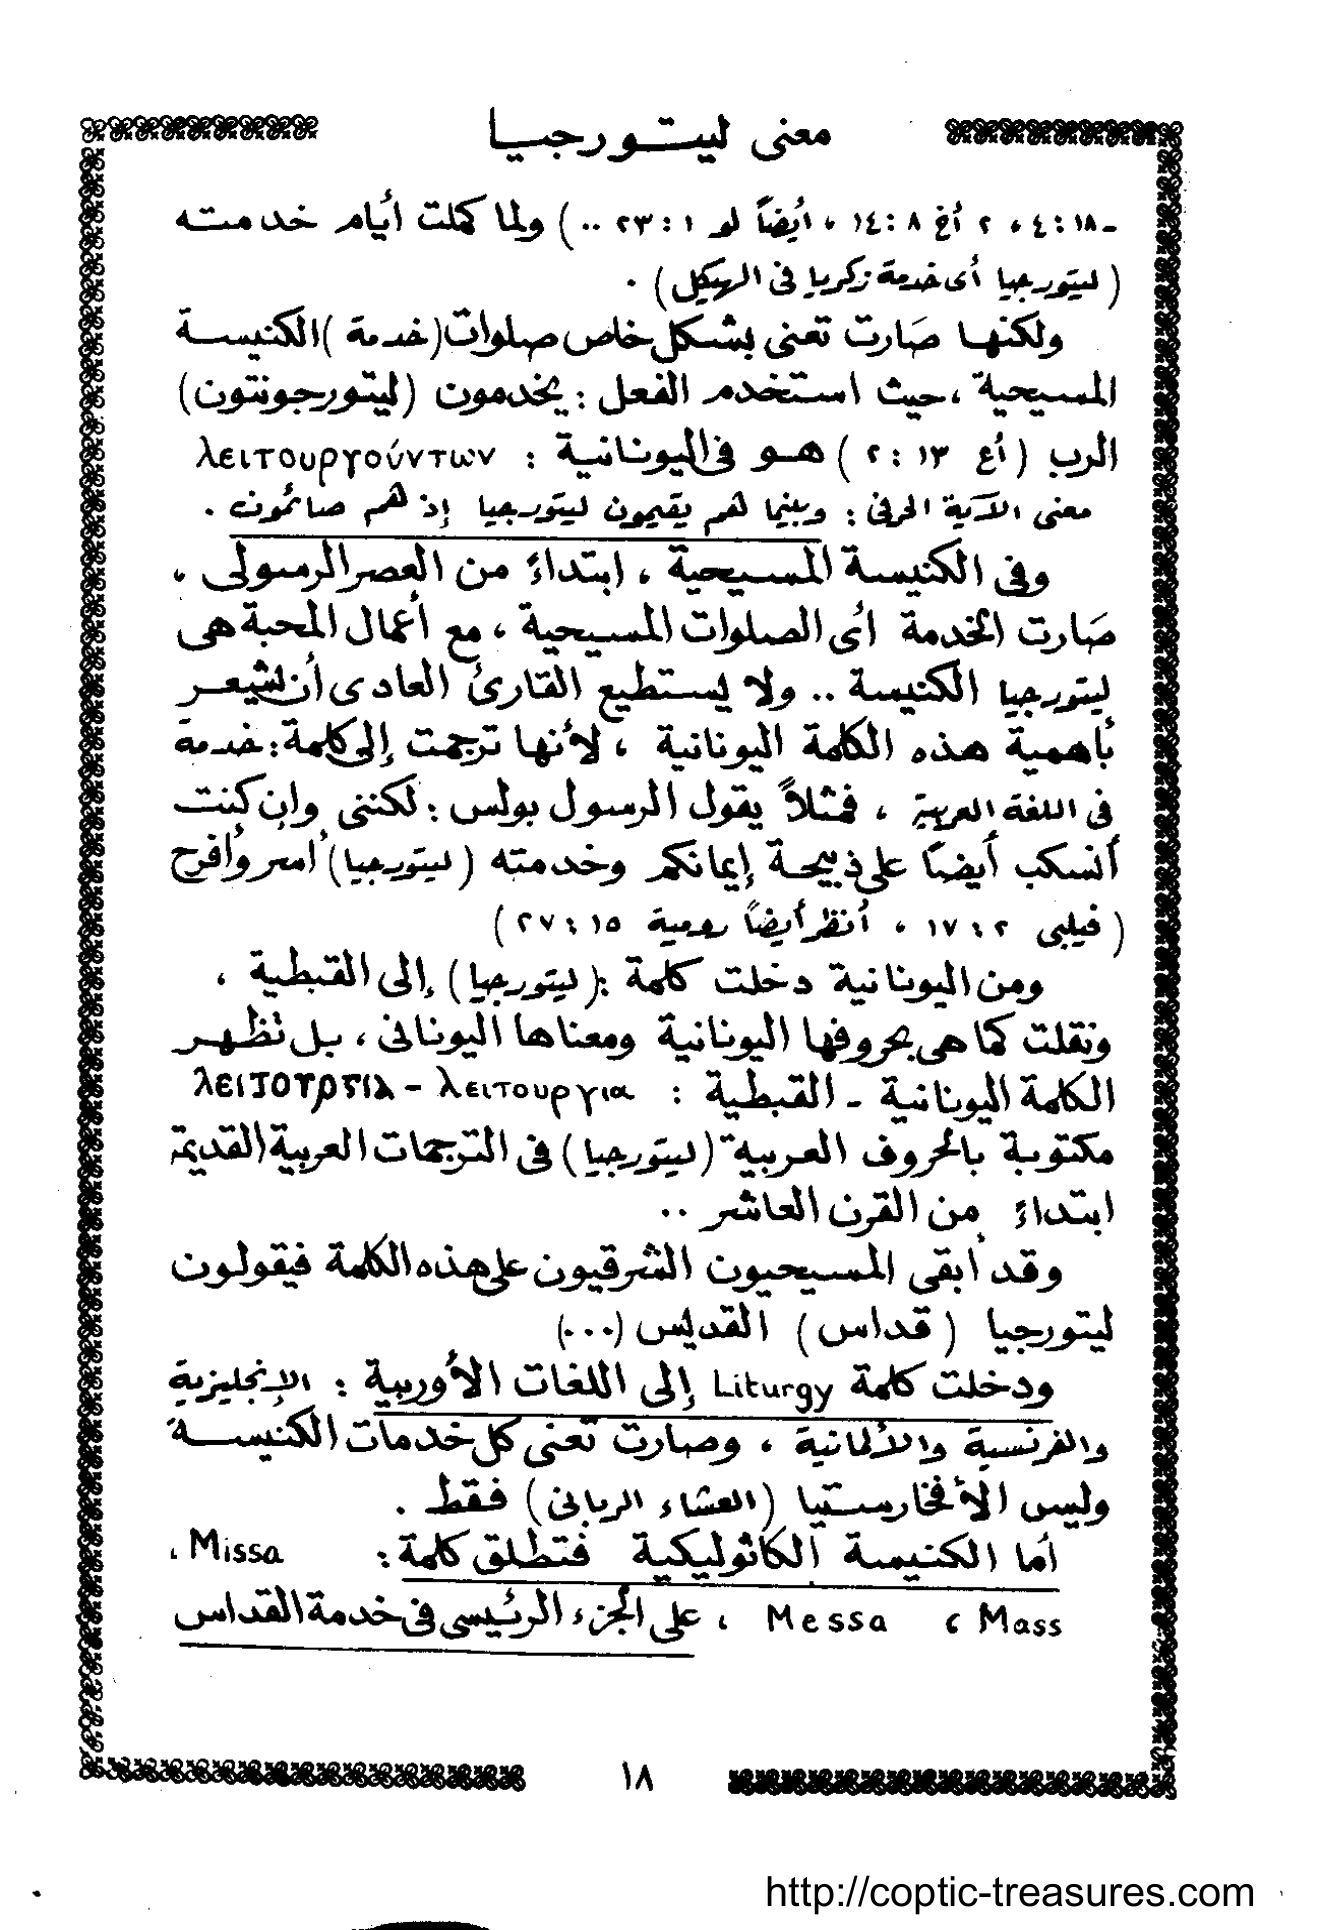 معنى ليتورجيا
ـ ١٨ : ٤ ، ٢ أخ ٨ : ١٤ ، أيضاً لو ١ : ٢٣ .. ) ولما كملت أيام خدمته
( ليتورجيا أى خدمة زكريا فى الهيكل ) .
ولكنها صَارت تعنى بشكل خاص صلوات ( خدمة ) الكنيسة
المسيحية ، حيث استخدم الفعل : يخدمون ( ليتورجونتون )
الرب ( أع ١٣ : ٢ ) هو فى اليونانية : λειτουργούντων
معنى الآية الحرفى : وبينما هم يقيمون ليتورجيا إذ هم صائمون .
وفى الكنيسة المسيحية ، ابتداءً من العصر الرسولى ،
صَارت الخدمة أى الصلوات المسيحية ، مع أعمال المحبة هى
ليتورجيا الكنيسة .. ولا يستطيع القارئ العادى أن يشعر
بأهمية هذه الكلمة اليونانية ، لأنها ترجمت إلى كلمة : خدمة
فى اللغة العربية ، فمثلاً يقول الرسول بولس : لكننى وإن كنت
أنسكب أيضاً على ذبيحة إيمانكم وخدمته ( ليتورجيا ) أسر وأفرح
( فيلبى ٢ : ١٧ ، أنظر أيضاً رومية ١٥ : ٢٧ )
ومن اليونانية دخلت كلمة : ( ليتورجيا ) إلى القبطية ،
ونقلت كما هى بحروفها اليونانية ومعناها اليونانى ، بل تظهر
الكلمة اليونانية ـ القبطية : λειτουργια - ⲗⲉⲓⲧⲟⲩⲣⲅⲓⲁ
مكتوبة بالحروف العربية ( ليتورجيا ) فى الترجمات العربية القديمة
ابتداءً من القرن العاشر ..
وقد أبقى المسيحيون الشرقيون على هذه الكلمة فيقولون
ليتورجيا ( قداس ) القديس ( ... )
ودخلت كلمة Liturgy إلى اللغات الأوربية : الإنجليزية
والفرنسية والألمانية ، وصارت تعنى كل خدمات الكنيسة
وليس الأفخارستيا ( العشاء الربانى ) فقط .
أما الكنيسة الكاثوليكية فتطلق كلمة : Missa ،
Mass ، Messa ، على الجزء الرئيسى فى خدمة القداس
١٨
http://coptic-treasures.com